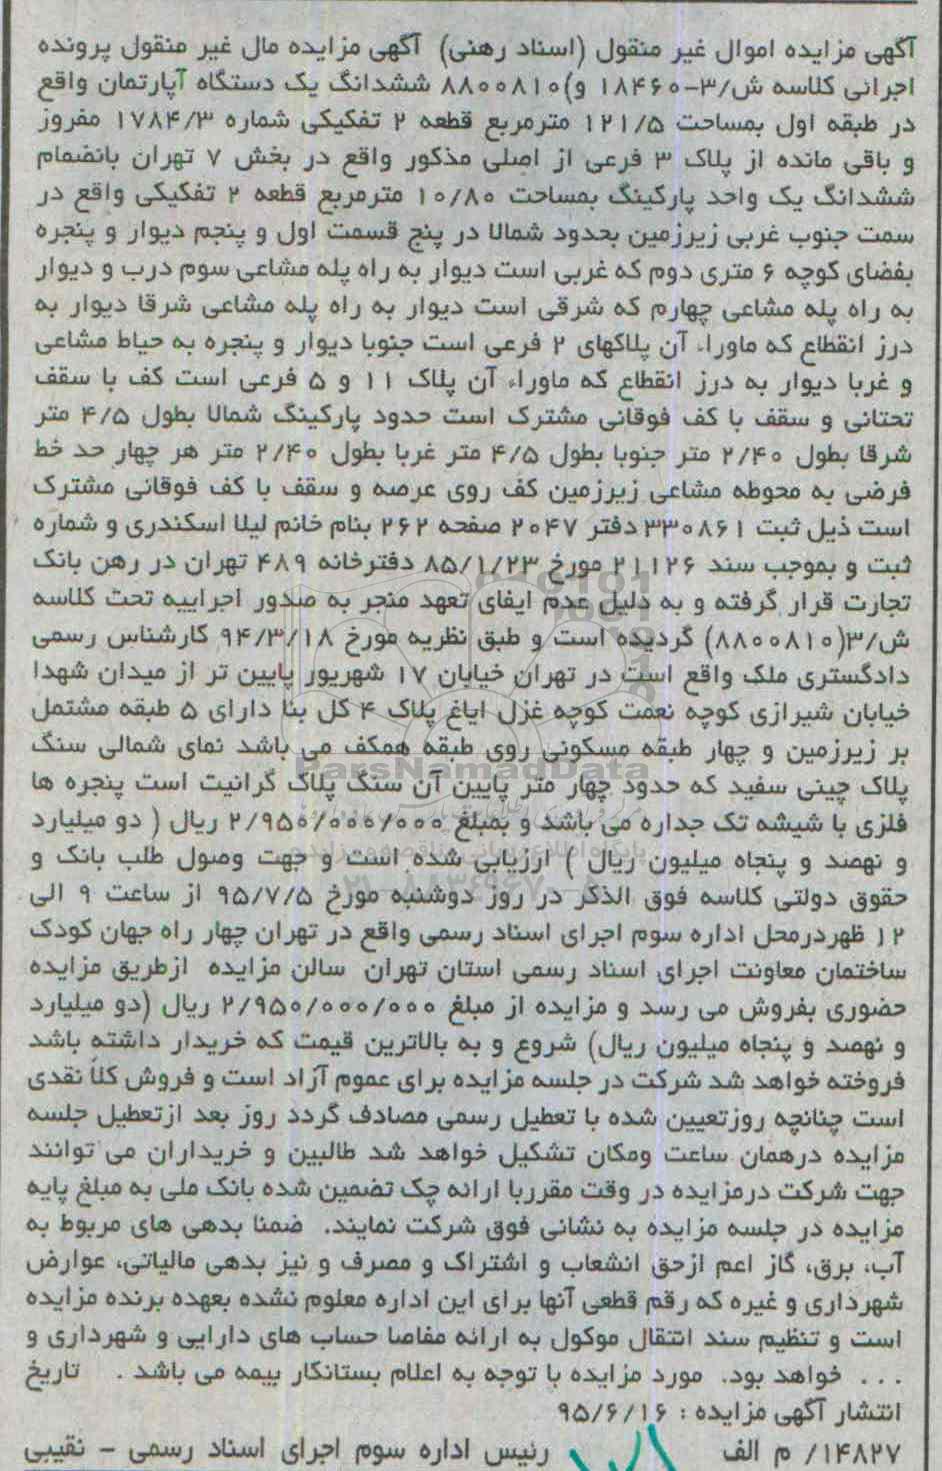 آگهی مزایده اموال غیر منقول (اسناد رهنی) آگهی مزایده مال غیر منقول پرونده
اجرائی کلاسه ش/۳-۱۸۴۶۰ و)۸۸۰۰۸۱۰ ششدانگ یک دستگاه آپارتمان واقع
در طبقه اول بمساحت ۱۲۱/۵ مترمربع قطعه ۲ تفکیکی شماره ۱۷۸۴/۳ مفروز
و باقی مانده از پلاک ۳ فرعی از اصلی مذکور واقع در بخش ۷ تهران بانضمام
ششدانگ یک واحد پارکینگ بمساحت ۱۰/۸۰ مترمربع قطعه ۲ تفکیکی واقع در
سمت جنوب غربی زیرزمین بحدود شمالا در پنج قسمت اول و پنجم دیوار و پنجره
بفضای کوچه ۶ متری دوم که غربی است دیوار به راه پله مشاعی سوم درب و دیوار
به راه پله مشاعی چهارم که شرقی است دیوار به راه پله مشاعی شرقا دیوار به
درز انقطاع که ماوراء آن پلاکهای ۲ فرعی است جنوبا دیوار و پنجره به حیاط مشاعی
و غربا دیوار به درز انقطاع که ماوراء آن پلاک ۱۱ و ۵ فرعی است کف با سقف
تحتانی و سقف با کف فوقانی مشترک است حدود پارکینگ شمالا بطول ۴/۵ متر
شرقا بطول ۲/۴۰ متر جنوبا بطول ۴/۵ متر غربا بطول ۲/۴۰ متر هر چهار حد خط
فرضی به محوطه مشاعی زیرزمین کف روی عرصه و سقف با کف فوقانی مشترک
است ذیل ثبت ۳۳۰۸۶۱ دفتر ۲۰۴۷ صفحه ۲۶۲ بنام خانم لیلا اسکندری و شماره
ثبت و بموجب سند ۲۱۱۲۶ مورخ ۸۵/۱/۲۳ دفترخانه ۴۸۹ تهران در رهن بانک
تجارت قرار گرفته و به دلیل عدم ایفای تعهد منجر به صدور اجراییه تحت کلاسه
ش/۳(۸۸۰۰۸۱۰) گردیده است و طبق نظریه مورخ ۹۴/۳/۱۸ کارشناس رسمی
دادگستری ملک واقع است در تهران خیابان ۱۷ شهریور پایین تر از میدان شهدا
خیابان شیرازی کوچه نعمت کوچه غزل ایاغ پلاک ۴ کل بنا دارای ۵ طبقه مشتمل
بر زیرزمین و چهار طبقه مسکونی روی طبقه همکف می باشد نمای شمالی سنگ
پلاک چینی سفید که حدود چهار متر پایین آن سنگ پلاک گرانیت است پنجره ها
فلزی با شیشه تک جداره می باشد و بمبلغ ۲/۹۵۰/۰۰۰/۰۰۰ ریال ( دو میلیارد
و نهصد و پنجاه میلیون ریال ) ارزیابی شده است و جهت وصول طلب بانک و
حقوق دولتی کلاسه فوق الذکر در روز دوشنبه مورخ ۹۵/۷/۵ از ساعت ۹ الی
۱۲ ظهردرمحل اداره سوم اجرای اسناد رسمی واقع در تهران چهار راه جهان کودک
ساختمان معاونت اجرای اسناد رسمی استان تهران سالن مزایده ازطریق مزایده
حضوری بفروش می رسد و مزایده از مبلغ ۲/۹۵۰/۰۰۰/۰۰۰ ریال (دو میلیارد
و نهصد و پنجاه میلیون ریال) شروع و به بالاترین قیمت که خریدار داشته باشد
فروخته خواهد شد شرکت در جلسه مزایده برای عموم آزاد است و فروش کلاً نقدی
است چنانچه روزتعیین شده با تعطیل رسمی مصادف گردد روز بعد ازتعطیل جلسه
مزایده درهمان ساعت ومکان تشکیل خواهد شد طالبین و خریداران می توانند
جهت شرکت درمزایده در وقت مقرربا ارائه چک تضمین شده بانک ملی به مبلغ پایه
مزایده در جلسه مزایده به نشانی فوق شرکت نمایند. ضمنا بدهی های مربوط به
آب، برق، گاز اعم ازحق انشعاب و اشتراک و مصرف و نیز بدهی مالیاتی، عوارض
شهرداری و غیره که رقم قطعی آنها برای این اداره معلوم نشده بعهده برنده مزایده
است و تنظیم سند انتقال موکول به ارائه مفاصا حساب های دارایی و شهرداری و
. . . خواهد بود. مورد مزایده با توجه به اعلام بستانکار بیمه می باشد . تاریخ
انتشار آگهی مزایده : ۹۵/۶/۱۶
۱۴۸۲۷/ م الف رئیس اداره سوم اجرای اسناد رسمی – نقیبی
ParsNamadData